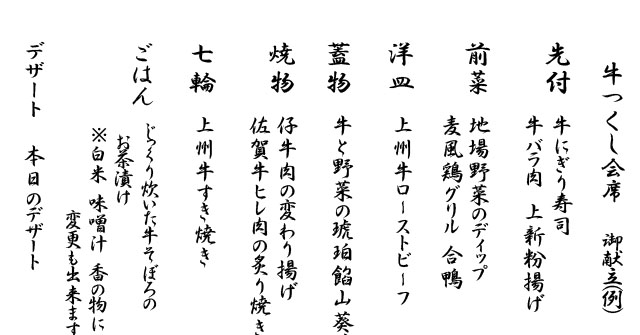 牛つくし会席 御献立(例)
先付 牛にぎり寿司
牛バラ肉 上新粉揚げ
前菜 地場野菜のディップ
麦風鶏グリル 合鴨
洋皿 上州牛ローストビーフ
蓋物 牛と野菜の琥珀餡山葵
焼物 仔牛肉の変わり揚げ
佐賀牛ヒレ肉の炙り焼き
七輪 上州牛すき焼き
ごはん じっくり炊いた牛そぼろの
お茶漬け
※白米 味噌汁 香の物に
変更も出来ます
デザート 本日のデザート